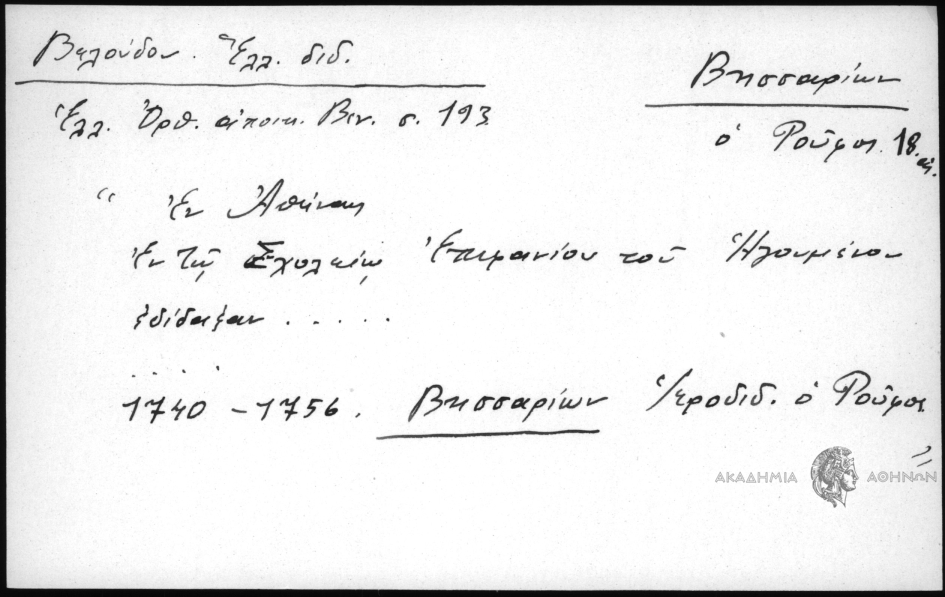 Βελούδου. Ἑλλ. διδ.
Βησσαρίων
Ἑλλ. Ὀρθ. ἀποικ. Βεν. σ. 193
ὁ Ροῦφος 18. αἰ.
“ Ἐν Ἀθήναις
Ἐν τῷ Σχολείῳ Ἐπιφανίου τοῦ Ἡγουμένου
ἐδίδαξαν . . . . .
. . . . .
1740 – 1756. Βησσαρίων Ἱεροδιδ. ὁ Ροῦφος
”
ΑΚΑΔΗΜΙΑ ΑΘΗΝΩΝ